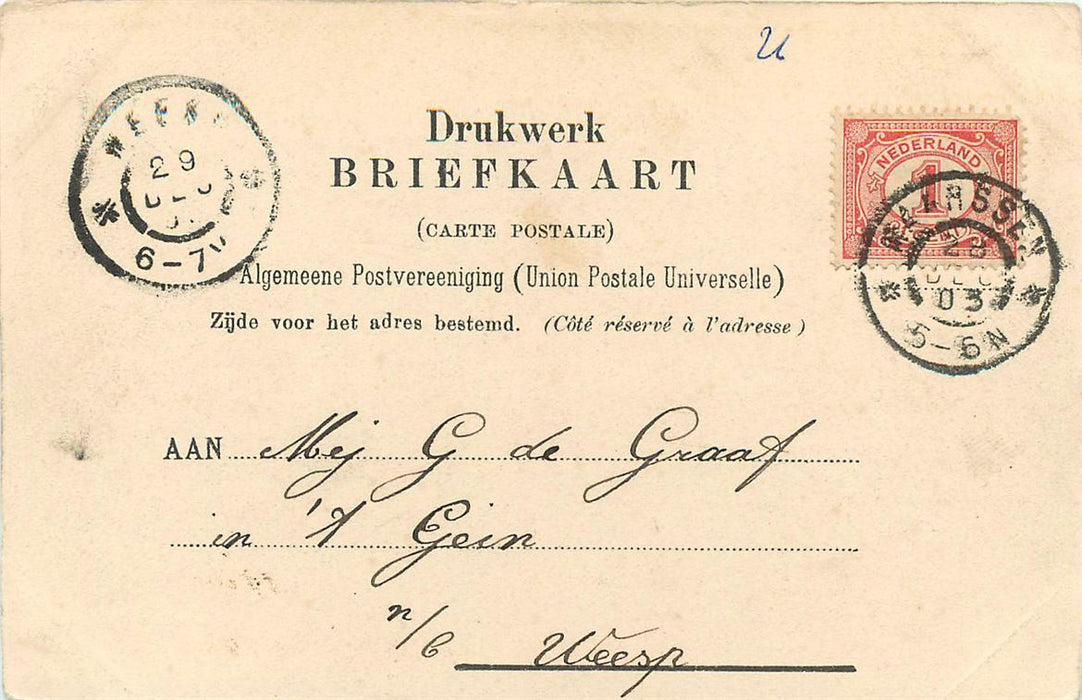 26
Drukwerk
BRIEFKAART
(CARTE POSTALE)
Algemeene Postvereeniging (Union Postale Universelle)
Zijde voor het adres bestemd. (Côté réservé à l'adresse)
29
DEC
6-7V
NEDERLAND
1
CENT
MAARSSEN
28
DEC
03
5-6N
AAN Mej G de Graaf
in 't Gein
n/b Weesp